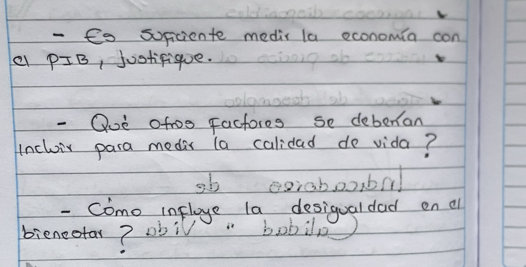 - Es suficiente medir la economía con
el PIB, justifique.
- Qué otros factores se deberían
incluir para medir la calidad de vida?
- Cómo influye la desigualdad en el
bienestar?